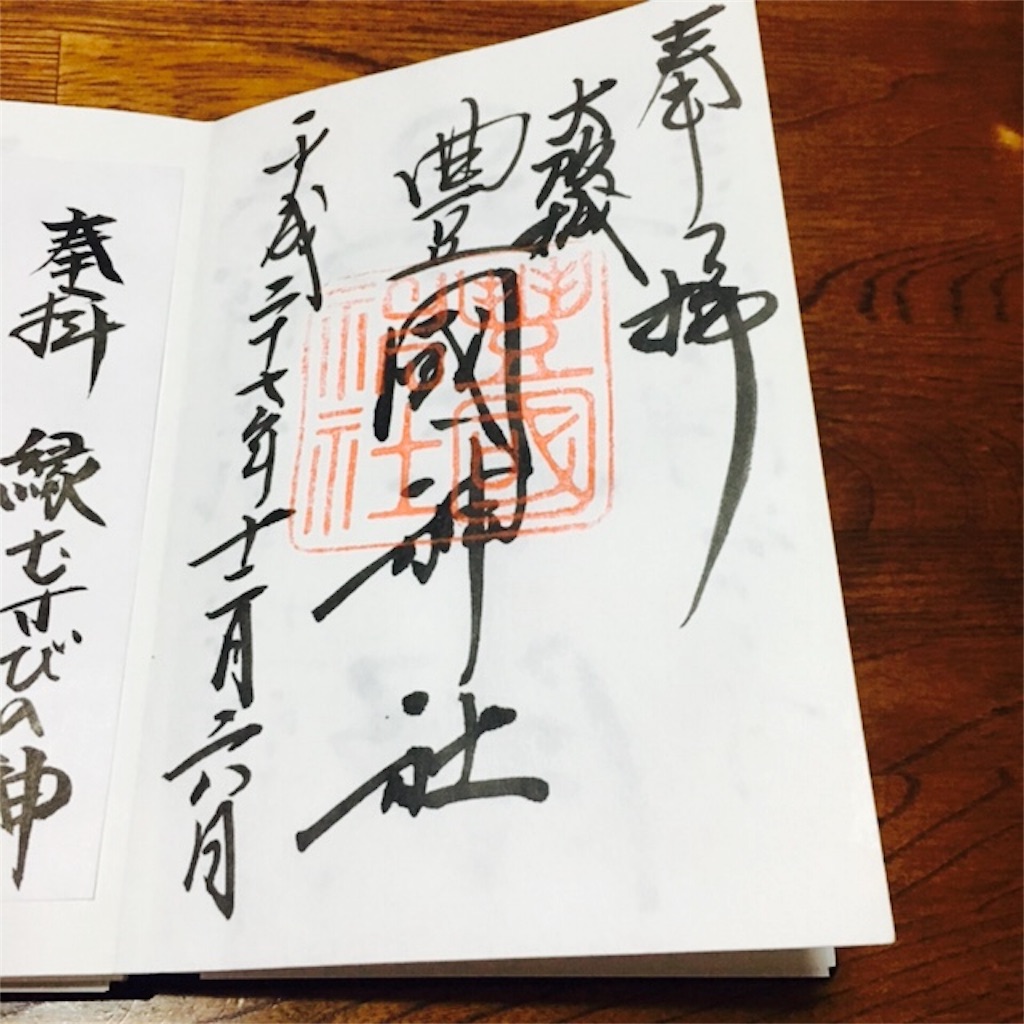 奉拝
大阪城
豊國神社
平成二十七年十二月六日
豊國神社
奉拝 縁むすびの神